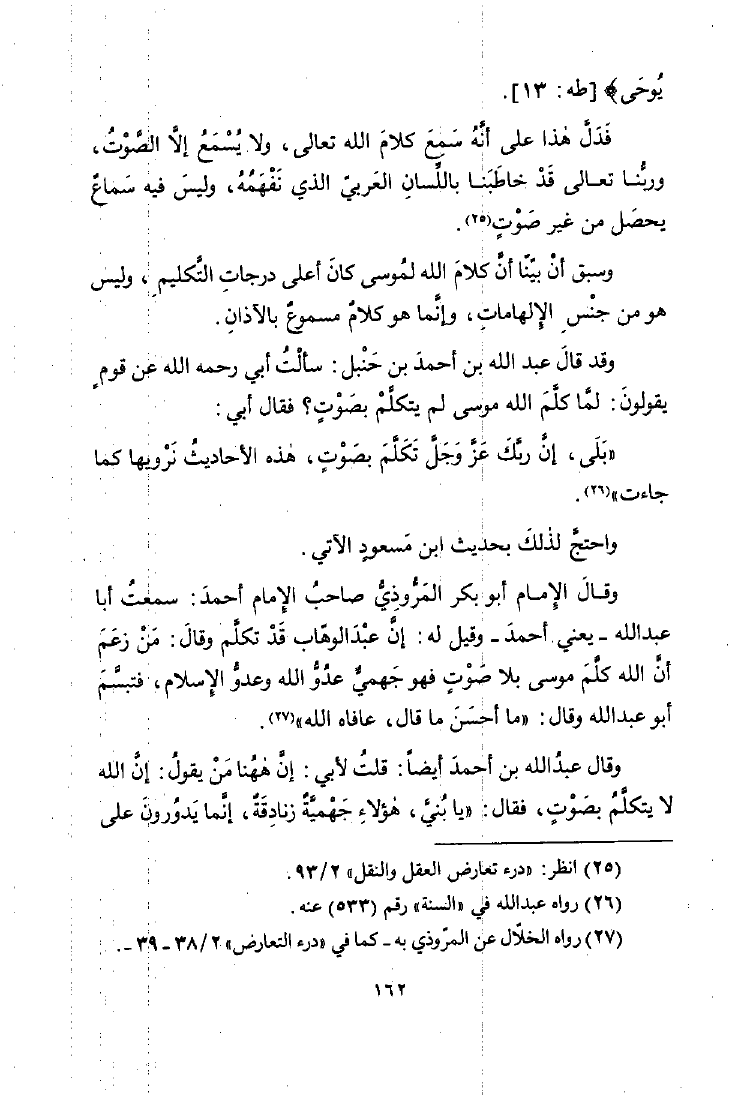 يُوحَى﴾ [طه: ١٣].
فَدَلَّ هٰذا على أنَّهُ سَمِعَ كلامَ الله تعالى، ولا يُسْمَعُ إلَّا الصَّوْتُ،
وربُّنا تعالى قَدْ خاطَبَنا باللِّسانِ العَربيّ الذي نَفْهَمُهُ، وليسَ فيه سَماعٌ
يحصَل من غير صَوْتٍ(٢٥).
وسبق أنْ بيّنّا أنَّ كلامَ الله لمُوسى كانَ أعلى درجاتِ التَّكليمِ، وليس
هو من جنْسِ الإلهاماتِ، وإنَّما هو كلامٌ مسموعٌ بالآذانِ.
وقد قالَ عبد الله بن أحمدَ بن حَنْبل: سألْتُ أبي رحمه الله عن قومٍ
يقولونَ: لمَّا كلَّمَ الله موسى لم يتكلَّم بصَوْتٍ؟ فقال أبي:
«بَلَى، إنَّ ربَّكَ عَزَّ وَجَلَّ تَكَلَّمَ بصَوْتٍ، هٰذه الأحاديثُ نَرْويها كما
جاءت»(٢٦).
واحتجَّ لذٰلكَ بحديث ابن مَسعودٍ الآتي.
وقـالَ الإمـام أبو بكر المَرُّوذِيُّ صاحبُ الإمام أحمدَ: سمعتُ أبا
عبدالله ـ يعني أحمدَ ـ وقيل له: إنَّ عبْدَالوهّاب قَدْ تكلَّم وقالَ: مَنْ زعَمَ
أنَّ الله كلَّمَ موسى بلا صَوْتٍ فهو جَهميٌّ عدُوُّ الله وعدوُّ الإسلام، فتبسَّمَ
أبو عبدالله وقال: «ما أحسَنَ ما قال، عافاه الله»(٢٧).
وقال عبدُالله بن أحمدَ أيضاً: قلتُ لأبي: إنَّ هٰهُنا مَنْ يقولُ: إنَّ الله
لا يتكلَّمُ بصَوْتٍ، فقال: «يا بُنيَّ، هٰؤلاءِ جَهْميَّةٌ زنادِقَةٌ، إنَّما يَدوُرونَ على
(٢٥) انظر: «درء تعارض العقل والنقل» ٢/ ٩٣.
(٢٦) رواه عبدالله في «السنة» رقم (٥٣٣) عنه.
(٢٧) رواه الخلّال عن المرّوذي به ـ كما في «درء التعارض» ٢/ ٣٨ ـ ٣٩ ـ.
١٦٢